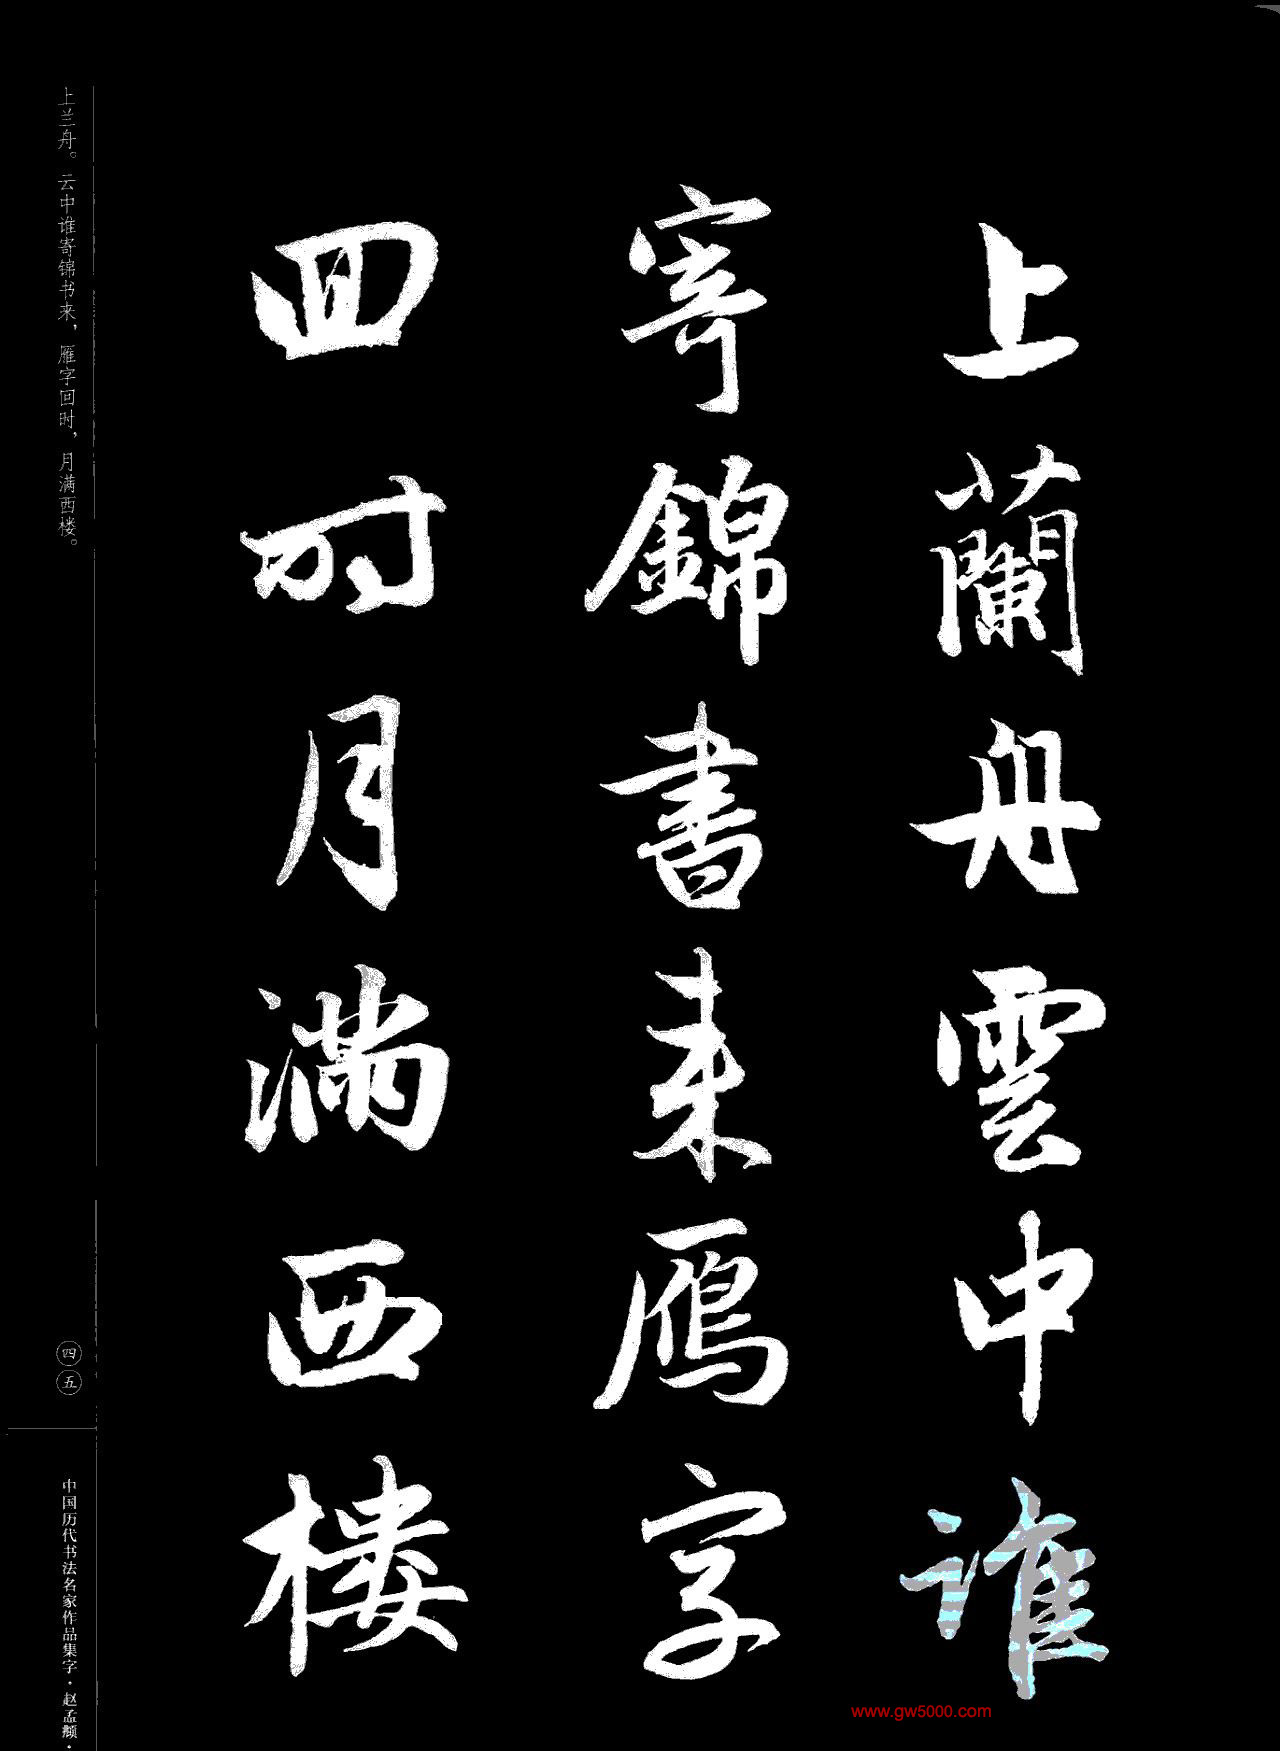 上蘭舟雲中誰
寄錦書来雁字
回时月滿西楼
上兰舟。云中谁寄锦书来，雁字回时，月满西楼。
四五
中国历代书法名家作品集字·赵孟頫·
www.gw5000.com